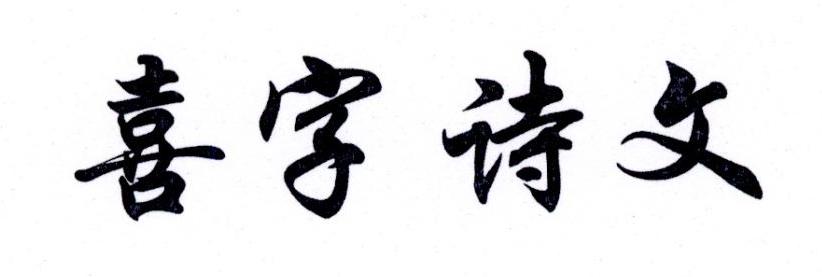 喜字诗文